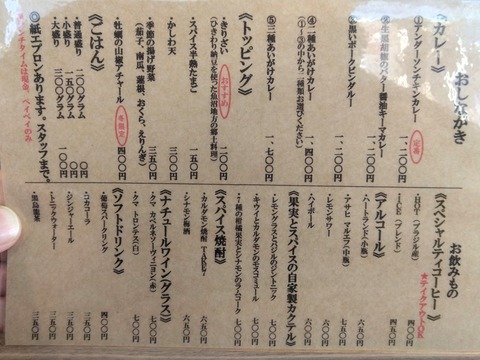 おしながき
《カレー》
①アンダーソンチキンカレー 定番 一、一〇〇
②生黒胡椒のバター醤油キーマカレー 一、二〇〇
③黒いポークビンダルー 一、二〇〇
④二種あいがけカレー 一、五〇〇
(①〜③の中から二種類お選びください)
⑤三種あいがけカレー 一、七〇〇
《トッピング》
・きりざい おすすめ 二〇〇
(ひきわり納豆を使った魚沼地方の郷土料理)
・スパイス半熟たまご 一五〇
・かしわ天 三〇〇
・季節の揚げ野菜 三五〇
(茄子、南瓜、蓮根、おくら、えりんぎ)
・牡蠣の山椒アチャール 冬限定 四〇〇
《ごはん》
・普通盛り 一五〇グラム 〇〇
・大盛り 二〇〇グラム
・小盛り
◎紙エプロンあります。スタッフまで。
ランチタイムは現金、ペイペイのみ
お飲みもの
《スペシャルティコーヒー》
★テイクアウトOK
・HOT(ブラジル産) 四五〇
・ICE(ブレンド)
《アルコール》
・ハートランド(小瓶)
・アサヒ マルエフ(中瓶)
・レモンサワー
・ハイボール
《果実とスパイスの自家製カクテル》
・レモングラスとジンのジントニック
・キウイとカルダモンのモスコミュール
・7種の柑橘果実とシナモンのラムコーク
《スパイス焼酎》
・カルダモン焼酎 TAKE7 六五〇
・シナモン梅酒 六五〇
《ナチュールワイン(グラス)》
・クマ カベルネソーヴィニヨン(赤) 七〇〇
・クマ トロンテス(白) 七〇〇
《ソフトドリンク》
・葡萄スパークリング 四〇〇
・コカコーラ 三五〇
・ジンジャーエール 三五〇
・トニックウォーター 三五〇
・黒烏龍茶 三五〇